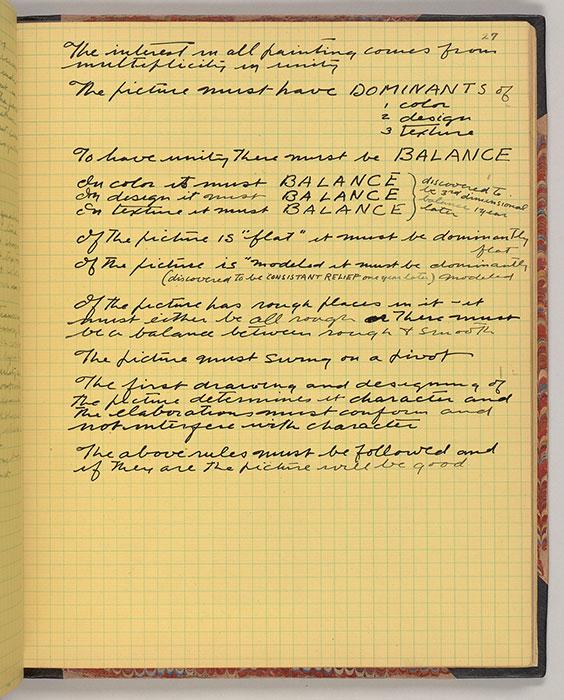 27
The interest in all painting comes from
multiplicity in unity
The picture must have DOMINANTS of
1 color
2 design
3 texture
To have unity there must be BALANCE
In color it must BALANCE
In design it must BALANCE
In texture it must BALANCE
discovered to
be 3rd dimensional
balance 1 year
later
If the picture is "flat" it must be dominantly
flat
If the picture is "modeled it must be dominantly
(discovered to be CONSISTANT RELIEF one year later) modeled
If the picture has rough places in it - it
must either be all rough or There must
be a balance between rough & smooth
The picture must swing on a pivot
The first drawing and designing of
the picture determines it character and
the elaborations must conform and
not interfere with character
The above rules must be followed and
if they are the picture will be good